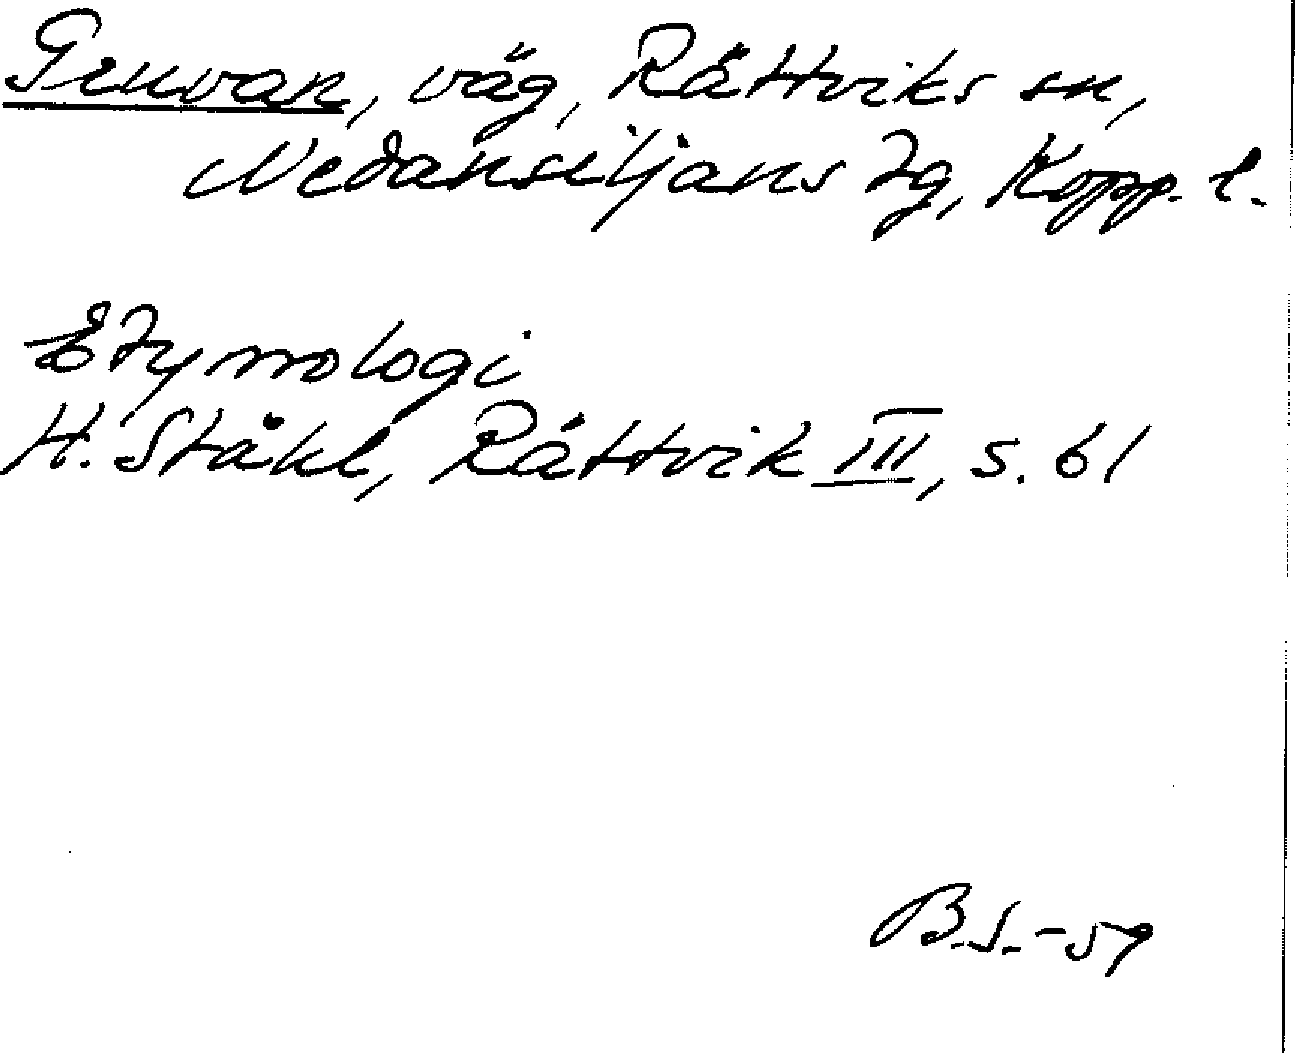 Genvan, väg, Rättviks sn,
Nedansiljans tg, Kopp. l.
Etymologi
H. Ståhl, Rättvik III, s. 61
B.S.-59